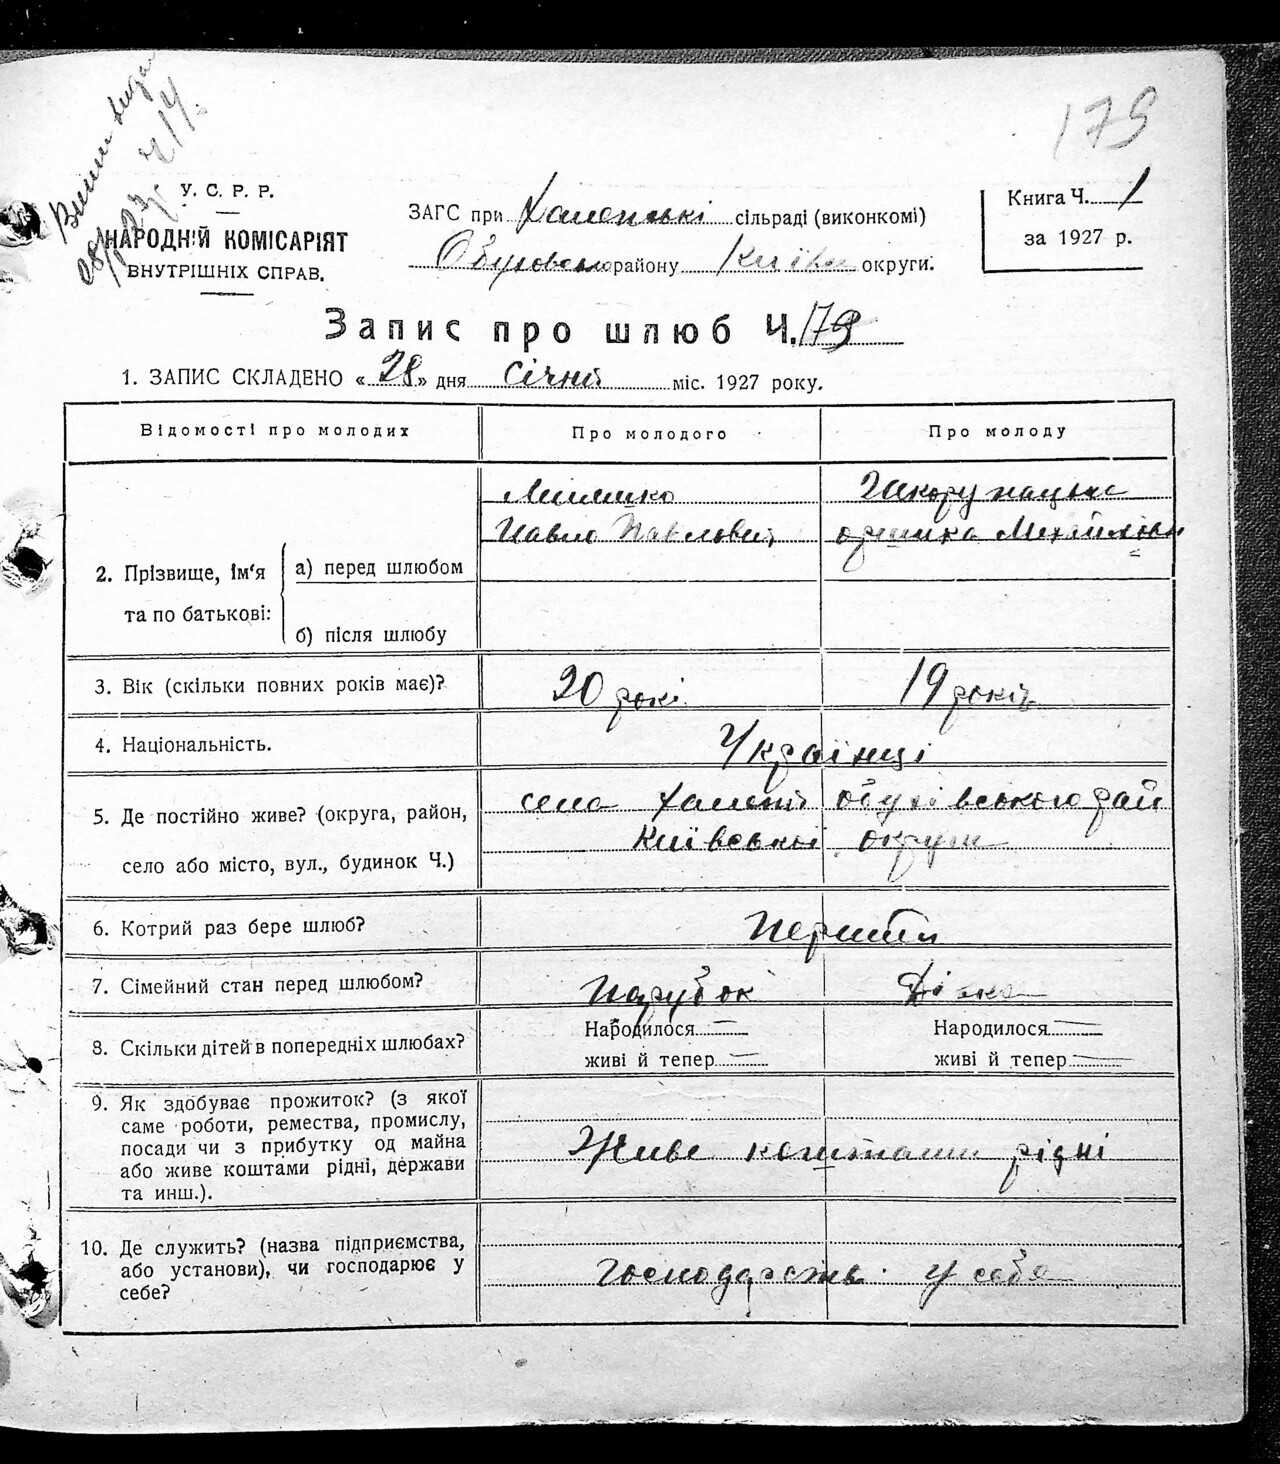 179
У. С. Р. Р.
НАРОДНІЙ КОМІСАРІЯТ
ВНУТРІШНІХ СПРАВ.
ЗАГС при Халепські сільраді (виконкомі)
Обуховського району Київ округи.
Книга Ч. 1
за 1927 р.
Запис про шлюб Ч. 179
1. ЗАПИС СКЛАДЕНО «28» дня Січня міс. 1927 року.
Відомості про молодих
Про молодого
Про молоду
2. Прізвище, ім'я та по батькові:
а) перед шлюбом
б) після шлюбу
Павло Павлович
3. Вік (скільки повних років має)?
20 рокі
19 років
4. Національність.
Українці
5. Де постійно живе? (округа, район,
село або місто, вул., будинок Ч.)
села Халепя обухівського рай
Київської округи
6. Котрий раз бере шлюб?
Перший
7. Сімейний стан перед шлюбом?
Парубок
Дівка
8. Скільки дітей в попередніх шлюбах?
Народилося —
живі й тепер —
Народилося —
живі й тепер —
9. Як здобуває прожиток? (з якої
саме роботи, ремества, промислу,
посади чи з прибутку од майна
або живе коштами рідні, держави
та инш.).
Живе коштами рідні
10. Де служить? (назва підприємства,
або установи), чи господарює у
себе?
у себе